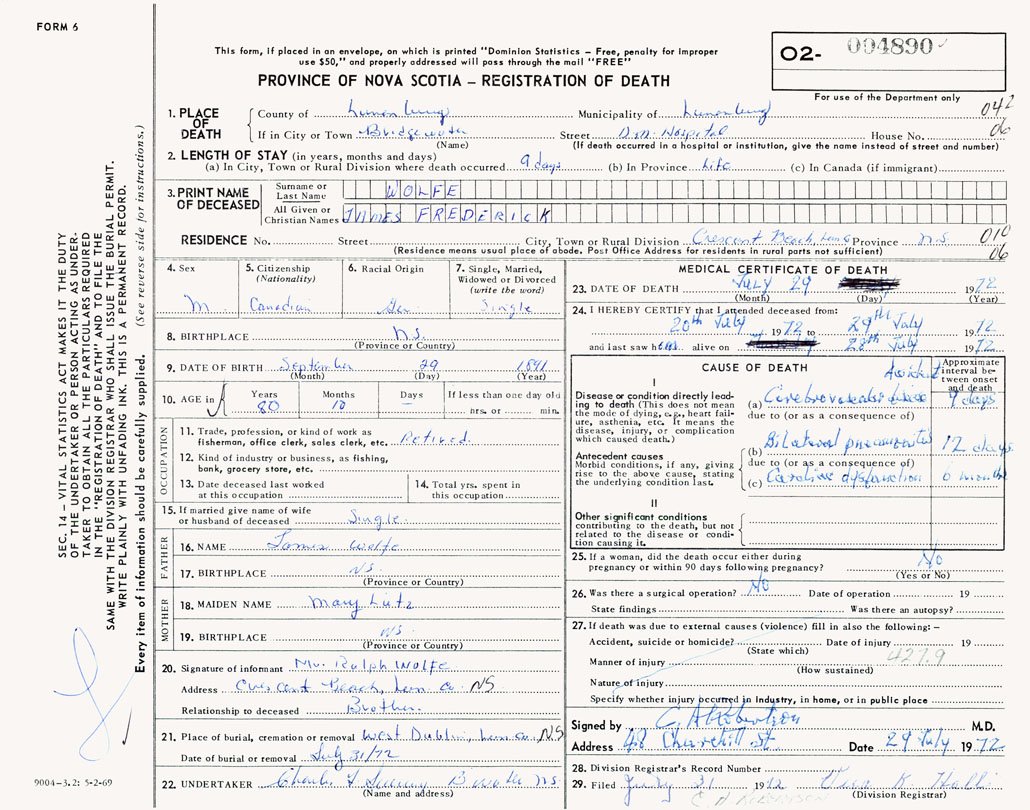 FORM 6
This form, if placed in an envelope, on which is printed "Dominion Statistics – Free, penalty for improper
use $50," and properly addressed will pass through the mail "FREE"
PROVINCE OF NOVA SCOTIA – REGISTRATION OF DEATH
02- 004890
For use of the Department only
1. PLACE OF DEATH
County of Lunenburg Municipality of Lunenburg 042
If in City or Town Bridgewater Street D.M. Hospital House No. 06
(Name) (If death occurred in a hospital or institution, give the name instead of street and number)
2. LENGTH OF STAY (in years, months and days)
(a) In City, Town or Rural Division where death occurred 9 days (b) In Province Life (c) In Canada (if immigrant)
3. PRINT NAME OF DECEASED
Surname or Last Name WOLFE
All Given or Christian Names JAMES FREDERICK
RESIDENCE No. Street City, Town or Rural Division Crescent Beach, Lun Co Province N.S. 010
(Residence means usual place of abode. Post Office Address for residents in rural parts not sufficient) 06
4. Sex M.
5. Citizenship (Nationality) Canadian
6. Racial Origin Ger
7. Single, Married, Widowed or Divorced (write the word) Single
8. BIRTHPLACE N.S.
(Province or Country)
9. DATE OF BIRTH September 29 1891
(Month) (Day) (Year)
10. AGE in Years 80 Months 10 Days – If less than one day old hrs. or min.
OCCUPATION
11. Trade, profession, or kind of work as
fisherman, office clerk, sales clerk, etc. Retired
12. Kind of industry or business, as fishing,
bank, grocery store, etc.
13. Date deceased last worked
at this occupation
14. Total yrs. spent in
this occupation
15. If married give name of wife
or husband of deceased Single
FATHER
16. NAME James Wolfe
17. BIRTHPLACE NS.
(Province or Country)
MOTHER
18. MAIDEN NAME Mary Lutz
19. BIRTHPLACE NS
(Province or Country)
20. Signature of informant Mr. Ralph Wolfe
Address Crescent Beach, Lun. Co. NS
Relationship to deceased Brother.
21. Place of burial, cremation or removal West Dublin, Lun. Co., N.S
Date of burial or removal July 31/72
22. UNDERTAKER Charles B'water N.S.
(Name and address)
MEDICAL CERTIFICATE OF DEATH
23. DATE OF DEATH July 29 1972
(Month) (Day) (Year)
24. I HEREBY CERTIFY that I attended deceased from:
20th July 1972 to 29th July 1972
and last saw him alive on 28th July 1972
CAUSE OF DEATH
Approximate interval between onset and death
I
Disease or condition directly leading to death (This does not mean the mode of dying, e.g., heart failure, asthenia, etc. It means the disease, injury, or complication which caused death.)
Accident
(a) Cerebrovascular 9 days
due to (or as a consequence of)
Antecedent causes
Morbid conditions, if any, giving rise to the above cause, stating the underlying condition last.
(b) Bilateral pneumonitis 12 days
due to (or as a consequence of)
(c) Cardiac dysfunction 6 months
II
Other significant conditions
contributing to the death, but not related to the disease or condition causing it.
25. If a woman, did the death occur either during
pregnancy or within 90 days following pregnancy? No
(Yes or No)
26. Was there a surgical operation? No Date of operation 19
State findings Was there an autopsy?
27. If death was due to external causes (violence) fill in also the following: –
Accident, suicide or homicide? Date of injury 19
(State which)
427.9
Manner of injury
(How sustained)
Nature of injury
Specify whether injury occurred in industry, in home, or in public place
Signed by C. A. Robertson M.D.
Address 48 Churchill St Date 29 July 1972
28. Division Registrar's Record Number
29. Filed July 31 1972 K.
(Division Registrar)
SEC. 14 – VITAL STATISTICS ACT MAKES IT THE DUTY
OF THE UNDERTAKER OR PERSON ACTING AS UNDERTAKER TO OBTAIN ALL THE PARTICULARS REQUIRED
IN THE "REGISTRATION OF DEATH" AND TO FILE THE
SAME WITH THE DIVISION REGISTRAR WHO SHALL ISSUE THE BURIAL PERMIT.
WRITE PLAINLY WITH UNFADING INK. THIS IS A PERMANENT RECORD.
Every item of information should be carefully supplied. (See reverse side for instructions.)
9004-3.2: 5-2-69